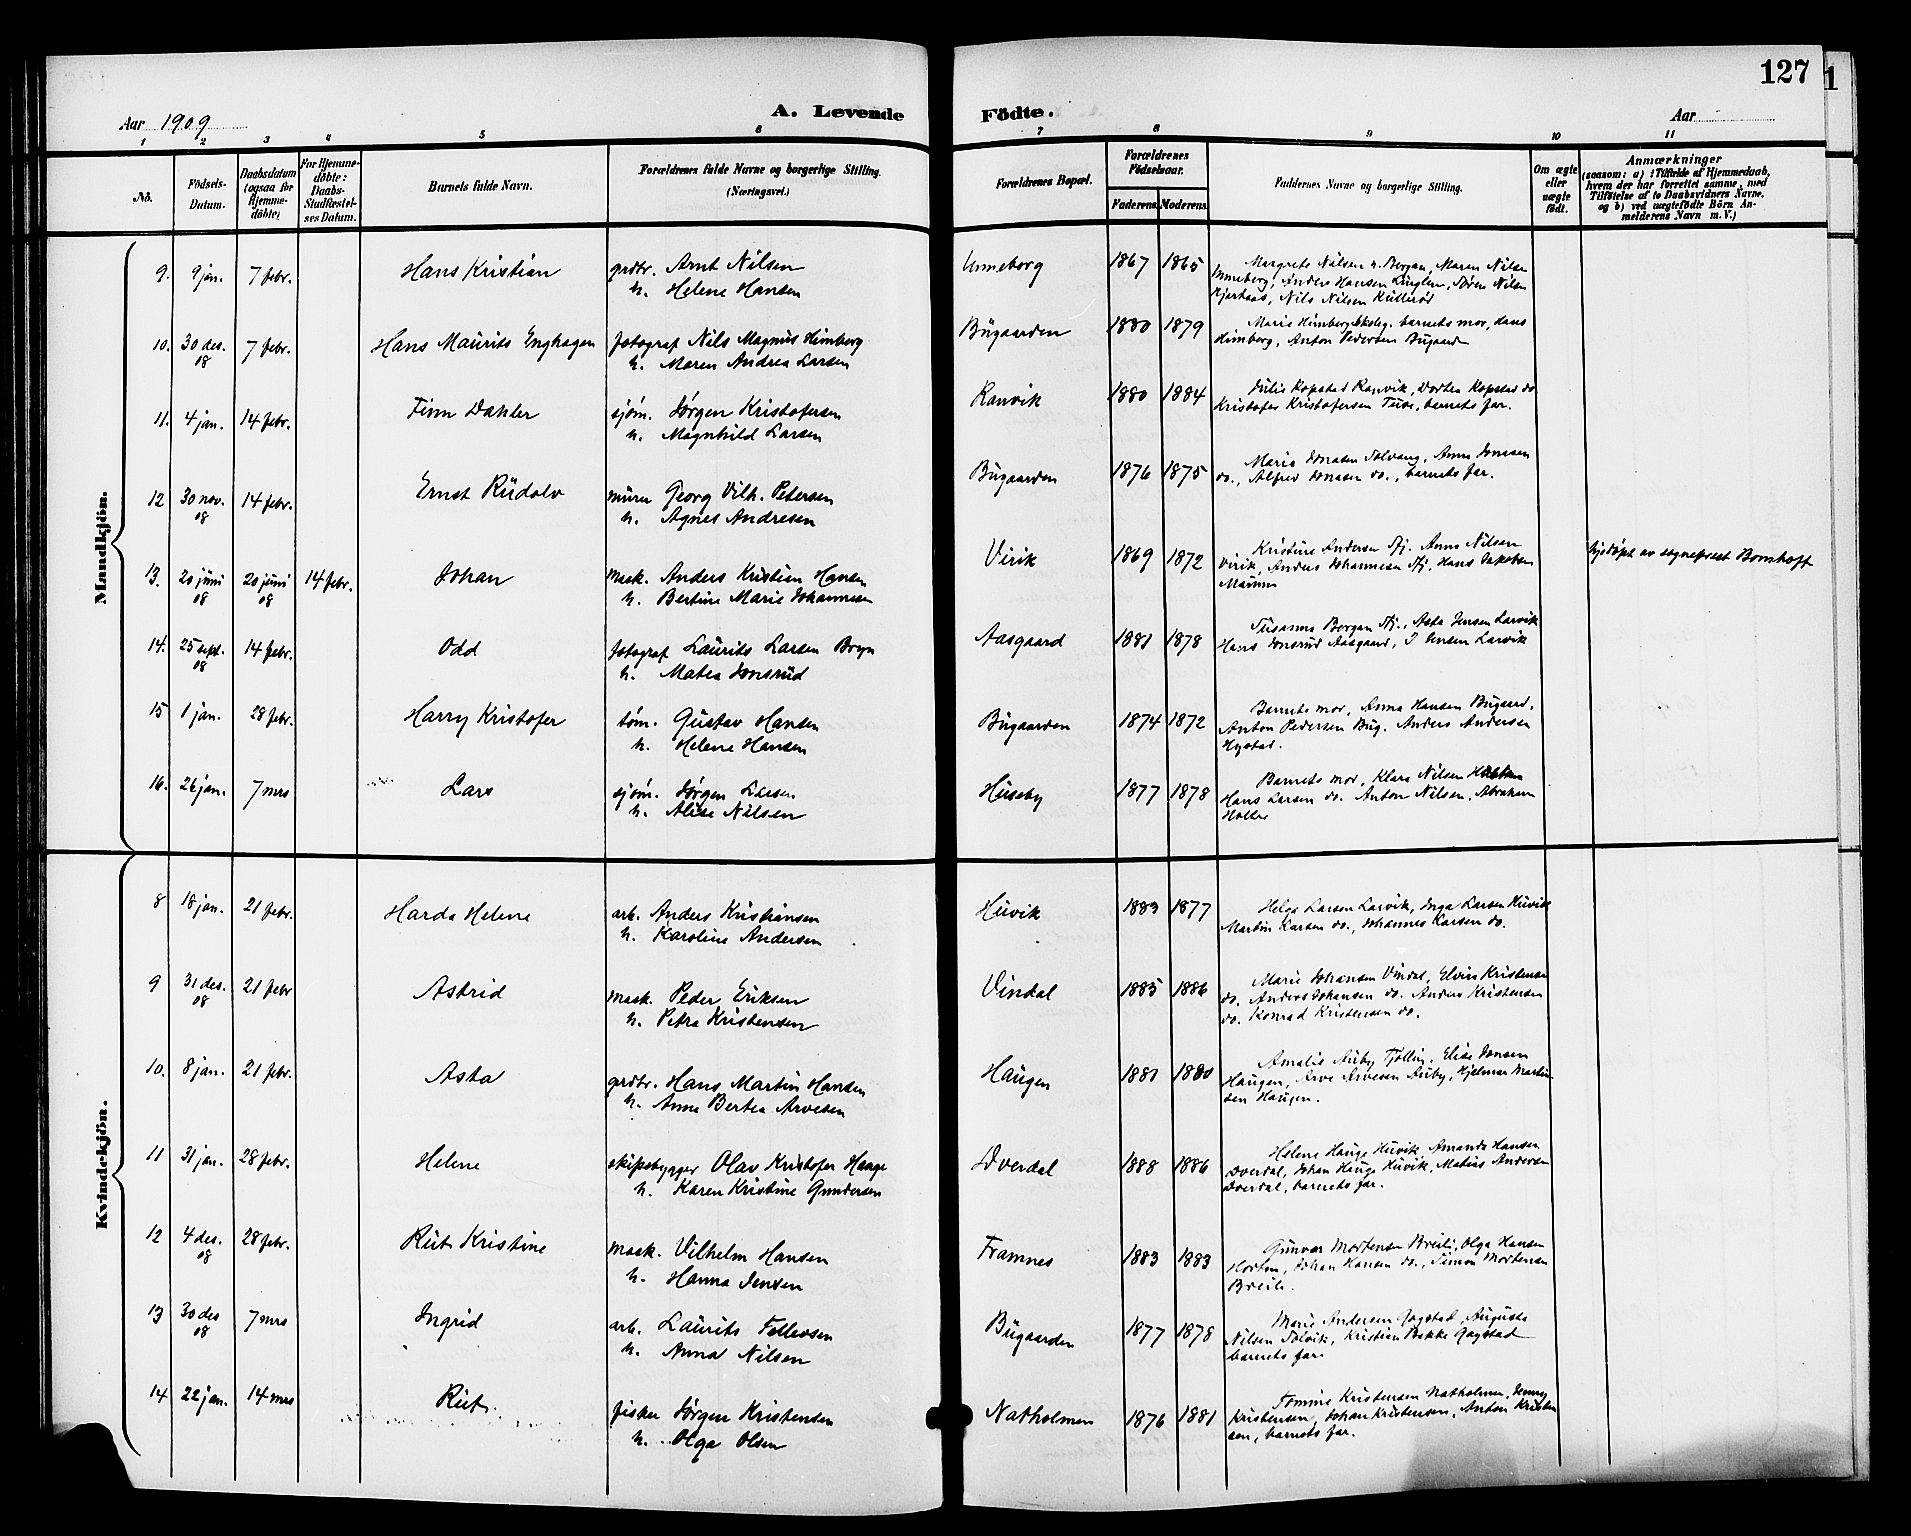 127
1
Aar 1909
A. Levende Födte.
Aar
1 2 3 4 5 6 7 8 9 10 11
No.
Födsels-Datum.
Daabsdatum (ogsaa for Hjemmedöbte)
For Hjemmedöbte: Daabs-Stadfæstelses Datum.
Barnets fulde Navn.
Forældrenes fulde Navne og borgerlige Stilling. (Næringsvei.)
Forældrenes Bopæl.
Forældrenes Födselsaar.
Faderens. Moderens.
Faddernes Navne og borgerlige Stilling.
Om ægte eller uægte födt.
Anmærkninger
(saasom: a) i Tilfælde af Hjemmedaab, hvem der har forrettet samme, med Tilföielse af to Daabsvidners Navne, og b) ved uægtefödte Börn Anmelderens Navn m. V.)
Mandkjön.
9. 9 jan. 7 febr. Hans Kristian grdbr. Arnt Nilsen Unneborg 1867 1865 Margrete Nilsen n. Bergan, Maren Nilsen
h. Helene Hansen Unneberg, Anders Hansen Lingelem, Søren Nilsen
Gjertaas, Nils Nilsen Kullerød
10. 30 des. 08 7 febr. Hans Maurits Enghagen fotograf Nils Magnus Himberg Bugaarden 1880 1879 Marie Himberg Skoleg. barnets mor, Hans
h. Maren Andrea Larsen Himberg, Anton Pedersen Bugaard
11. 4 jan. 14 febr. Finn Dahler sjøm. Jørgen Kristofersen Ranvik 1880 1884 Julie Kopstad Ranvik, Dortea Kopstad do
h. Magnhild Larsen Kristofer Kristofersen Tuve, barnets far.
12 30 nov. 08 14 febr. Ernst Rudolv murer Georg Vilh. Petersen Bugaarden 1876 1875 Marie Jonasen Solvang, Anna Jonasen
h. Agnes Andresen do., Alfred Jonasen do., barnets far.
13. 20 juni 08 20 juni 08 14 febr. Johan mask. Anders Kristian Hansen Virik 1869 1872 Kristine Andersen Sfj. Anna Nilsen
h. Bertine Marie Johannesen Virik, Anders Johannesen Sfj. Hans Jakobsen
hjedøpt av sogneprest Bomhoff
14. 25 sept. 08 14 febr. Odd fotograf Laurits Larsen Bryn Aasgaard 1881 1878 Susanna Bergan Sfj., Asta Jensen Larvik
h. Matea Jonsrud Hans Jonsrud Aasgaard, J Jensen Larvik
15 1 jan. 28 febr. Harry Kristofer tøm. Gustav Hansen Bugaarden 1874 1872 Barnets mor, Anna Hansen Bugaard,
h. Helene Hansen Anton Pedersen Bug. Anders Andersen
Hystad.
16. 26 jan. 7 mrs Lars sjøm. Jørgen Larsen Huseby 1877 1878 Barnets mor, Klara Nilsen
h. Alise Nilsen Hans Larsen do. Anton Nilsen, Abraham
Holtse
Kvindekjön.
8 18 jan. 21 febr. Harda Helene arb. Anders Kristiansen Huvik 1883 1877 Helga Larsen Larvik, Inga Larsen Huvik
h. Karoline Andersen Martin Larsen do., Johannes Larsen do.
9 31 des. 08 21 febr Astrid mask. Peder Eriksen Vindal 1885 1886 Marie Johansen Vindal, Elvira Kristensen
h. Petra Kristensen do. Anders Johansen do. Anders Kristensen
do. Konrad Kristensen do.
10. 8 jan. 21 febr. Asta grdbr. Hans Martin Hansen Haugen 1881 1880 Amalie Auby Tjølling, Elise Jonsen
h. Anna Bertea Arvesen Haugen, Arve Arvesen Auby, Hjelmar Martin
sen Haugen.
11 31 jan. 28 febr. Helene skipsbygger Olav Kristofer Hauge Dverdal 1888 1886 Helene Hauge Huvik, Amanda Hansen
h. Karen Kristine Gundersen Dverdal, Johan Hauge Huvik, Matias Andersen
Dverdal, barnets far.
12 4 des. 08 28 febr. Rut Kristine mask. Vilhelm Hansen Framnes 1883 1883 Gunvar Mortensen Breili, Olga Hansen
h. Hanna Jensen Horten, Johan Hansen do., Simon Mortensen
Breili.
13 30 des 08 7 mrs Ingrid arb. Laurits Tollevsen Bugaarden 1877 1878 Marie Andersen Gogstad, Augusta
h. Anna Nilsen Nilsen Solvik, Kristian Bakke Gogstad
barnets far.
14 22 jan. 14 mrs Rut fisker Jørgen Kristensen Natholmen 1876 1881 Tomine Kristensen Natholmen, Jenny
h. Olga Olsen Kristensen, Johan Kristensen, Anton Kristen
sen, barnets far.